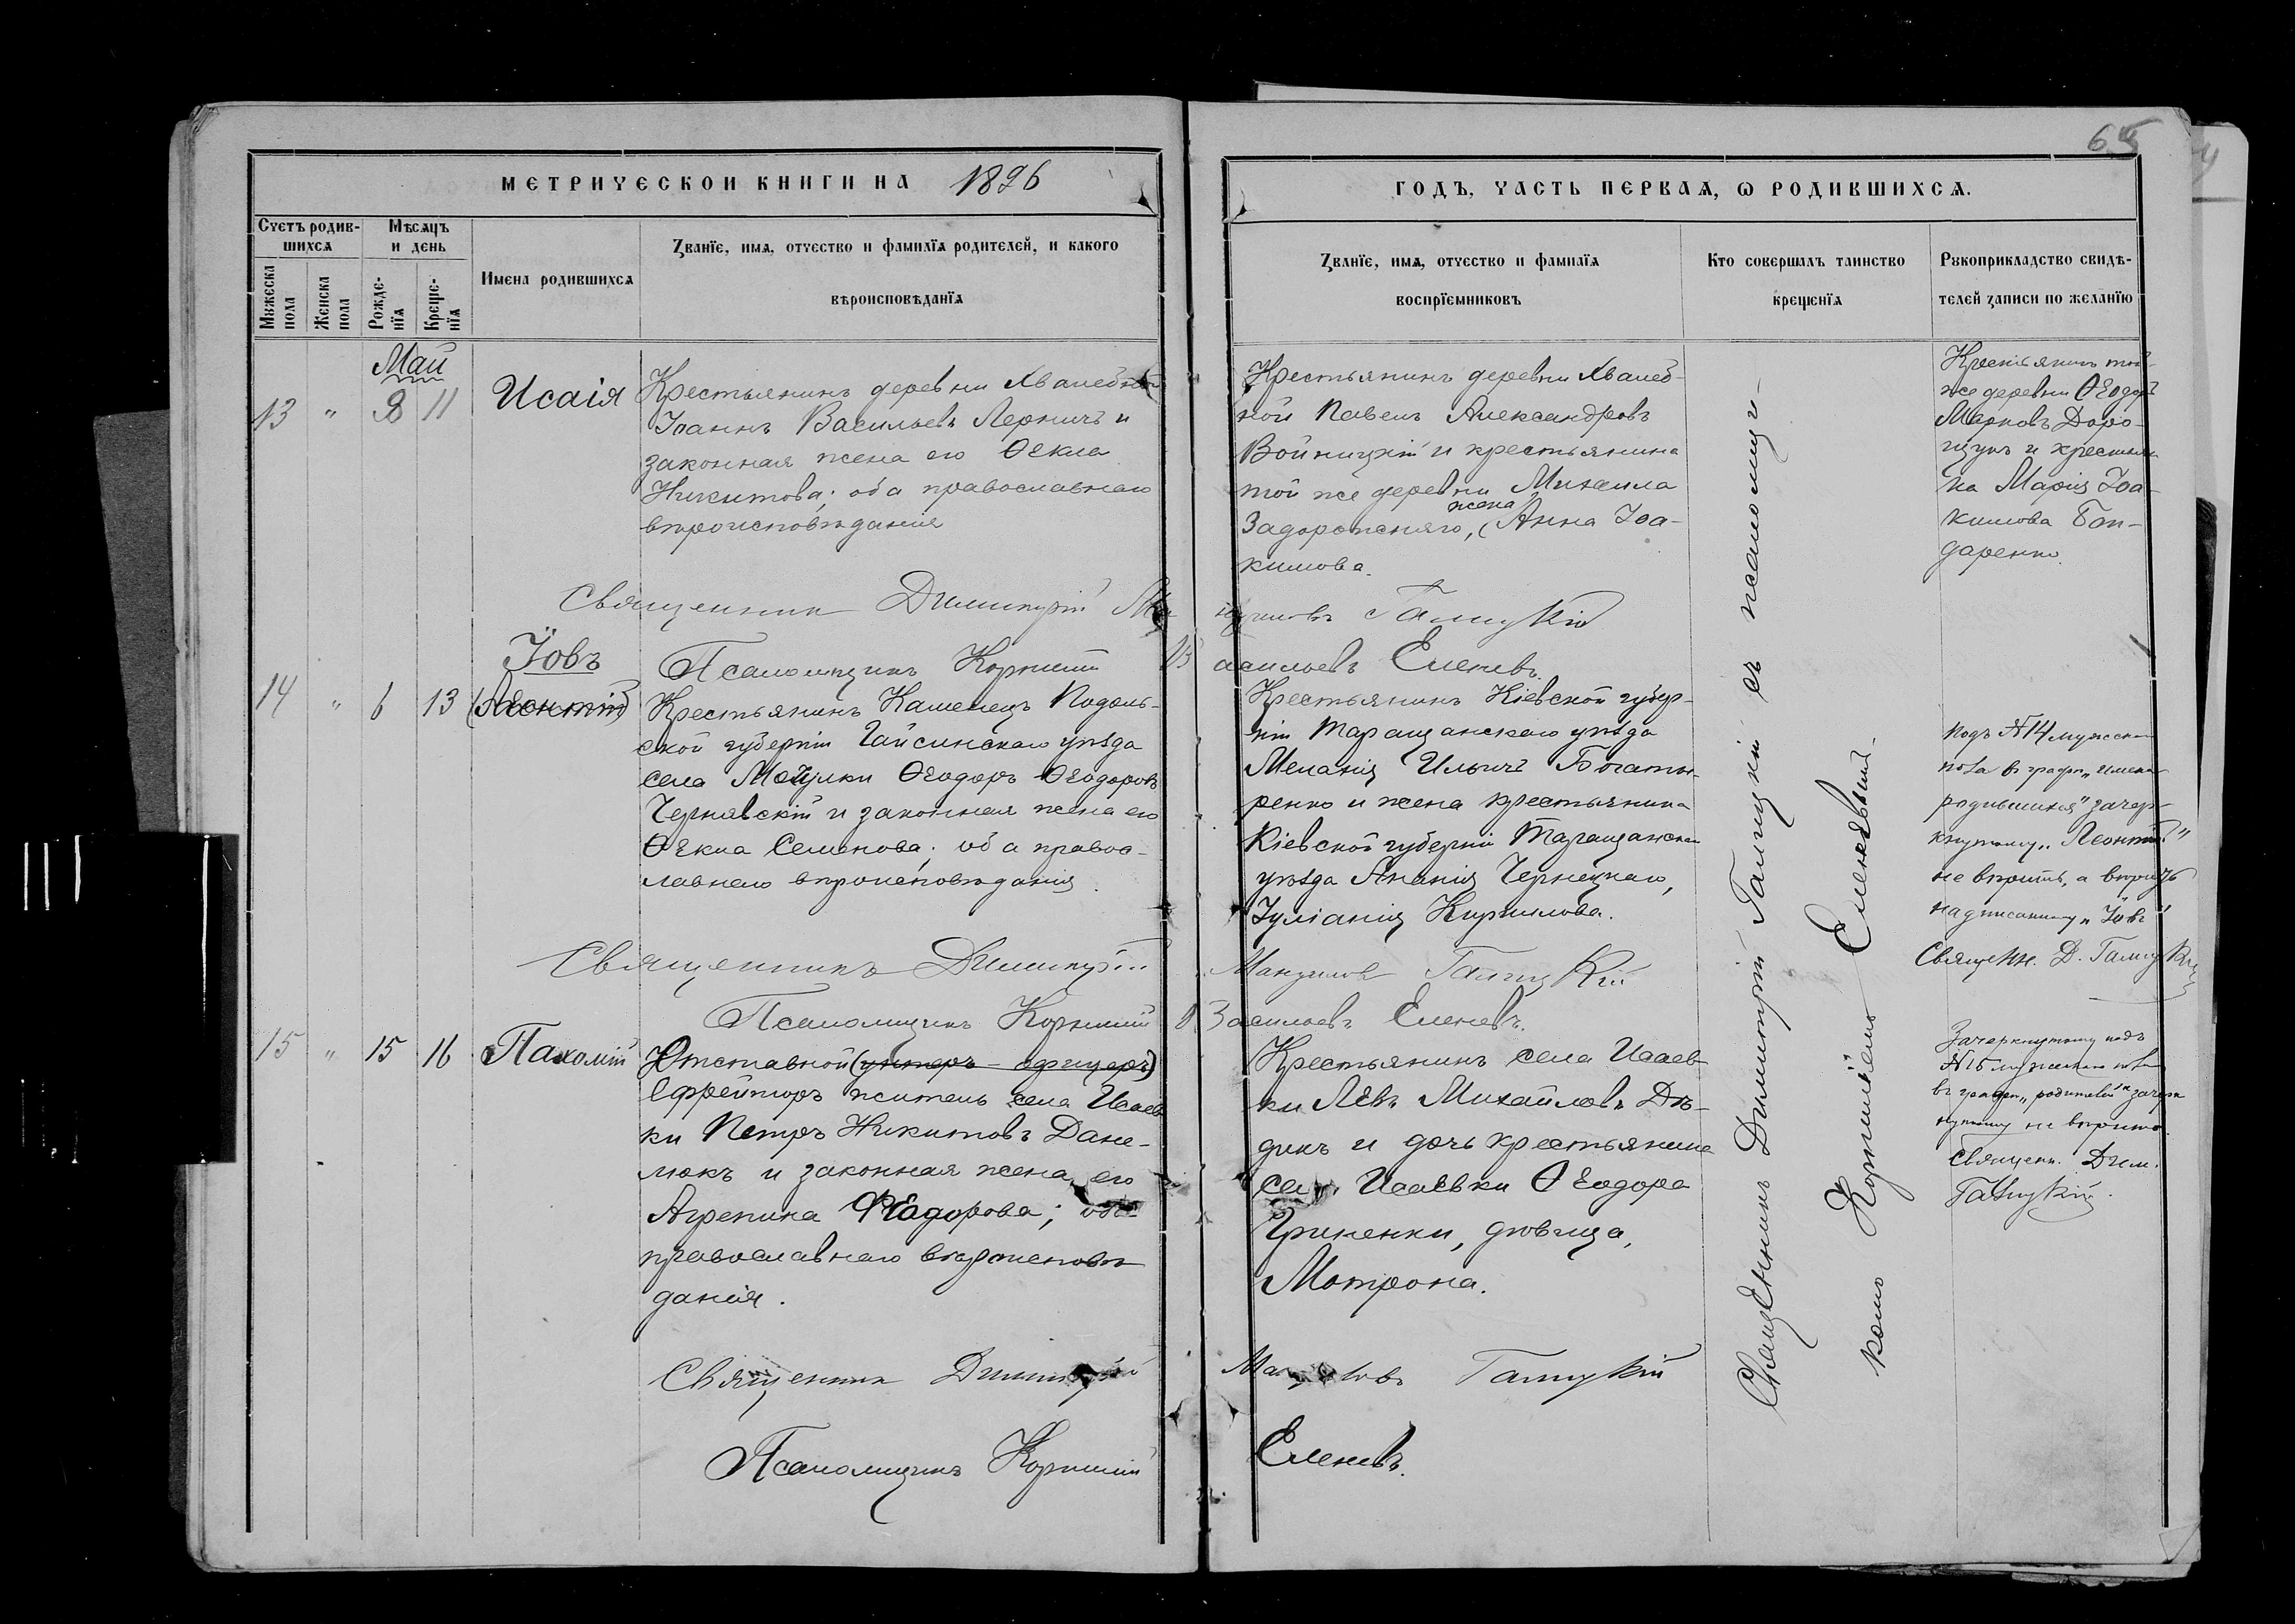 65
МЕТРИЧЕСКОИ КНИГИ НА 1896
ГОДЪ, ЧАСТЬ ПЕРВАѦ, Ѡ РОДИВШИХСѦ.
Счетъ родив-
шихсѧ
Мѹжеска
пола
Женска
пола
Мѣсѧцъ
и день
Рожде-
нїѧ
Креще-
нїѧ
Имена родившихсѧ
Званїе, имѧ, отчество и фамилїѧ родителей, и какого
вѣроисповѣданїѧ
Званїе, имѧ, отчество и фамилїѧ
воспрїемниковъ
Кто совершалъ таинство
крещенїѧ
Рѹкоприкладство свидѣ-
телей записи по желанїю
Май
13 " 8 11
Исаія
Крестьянинъ деревни Хвалебной
Іоаннъ Васильевъ Лерничъ и
законная жена его Ѳекла
Никитова; оба православнаго
вѣроисповѣданія
Крестьянинъ деревни Хвалеб-
ной Павелъ Александровъ
Войницкій и крестьянина
той же деревни Михаила
Задорожняго, жена Анна Іоа-
кимова.
Крестьянинъ той
же деревни Ѳеодоръ
Марковъ Доро-
щукъ и крестьян
ка Марія Іоа-
кимова Бон-
даренко.
Священникъ Димитрій Галицкій
Псаломщикъ Корнилій Васильевъ Еленевъ.
14 " 6 13
Іовъ
(Леонтій)
Крестьянинъ Каменецъ Подоль-
ской губерніи Гайсинскаго уѣзда
села Мочулки Ѳеодоръ Ѳеодоровъ
Чернявскій и законная жена его
Ѳекла Семенова; оба правос-
лавнаго вѣроисповѣданія.
Крестьянинъ Кіевской губер-
ніи Таращанскаго уѣзда
Меланія Ильичъ Богаты-
ренко и жена крестьянина
Кіевской губерніи Таращанскаго
уѣзда Ананія Чернецкаго,
Іуліанія Кирилова.
Подъ №14 мужеска
пола въ графѣ „имена
родившихся" зачер-
кнутому „Леонтій"
не вѣрить, а вѣрить
надписанному „Іовъ"
Священ. Д. Галицкій
Священникъ Димитрій Галицкій
Псаломщикъ Корнилій Васильевъ Еленевъ.
15 " 15 16
Пахомій
Отставной (унтеръ-офицеръ)
Ефрейторъ житель села Исаев
ки Петръ Никитовъ Дани-
люкъ и законная жена его
Агрепина Ѳеодорова; оба
православнаго вѣроисповѣ
данія.
Крестьянинъ села Исаев
ки Левъ Михайловъ Дѣ-
дикъ и дочь крестьянина
села Исаевки Ѳеодора
Гриненки, дѣвица,
Мотрона.
Зачеркнутому подъ
№15 мужескаго пола
въ графѣ „родителей" зачерк
нутому не вѣрить.
Священ. Дим.
Галицкій.
Священникъ Димитрій Галицкій
Псаломщикъ Корнилій Еленевъ.
Священникъ Димитрій Галицкій съ псаломщи-
комъ Корниліемъ Еленевымъ.